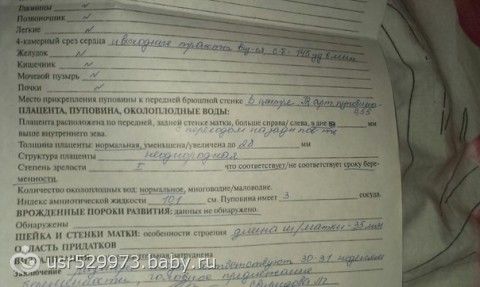 Позвоночник N
Легкие N
4-камерный срез сердца
Желудок N
Кишечник N
Мочевой пузырь N
Почки N
Место прикрепления пуповины к передней брюшной стенке
ПЛАЦЕНТА, ПУПОВИНА, ОКОЛОПЛОДНЫЕ ВОДЫ:
Плацента расположена по передней, задней стенке матки, больше справа/ слева, в дне на мм
выше внутреннего зева. переходом назад
Толщина плаценты: нормальная, уменьшена/увеличена до 28 мм
Структура плаценты неоднородная
Степень зрелости I что соответствует/не соответствует сроку бере-
менности.
Количество околоплодных вод: нормальное, многоводие/маловодие.
Индекс амниотической жидкости 101 см. Пуповина имеет 3 сосуда.
ВРОЖДЕННЫЕ ПОРОКИ РАЗВИТИЯ: данных не обнаружено.
Обнаружены
ШЕЙКА И СТЕНКИ МАТКИ: особенности строения длина ш/матки - 35 мм
ОБЛАСТЬ ПРИДАТКОВ
затруднена
Заключение соответствуют 30-31 неделям
беременности, головное предлежание
usr529973.baby.ru